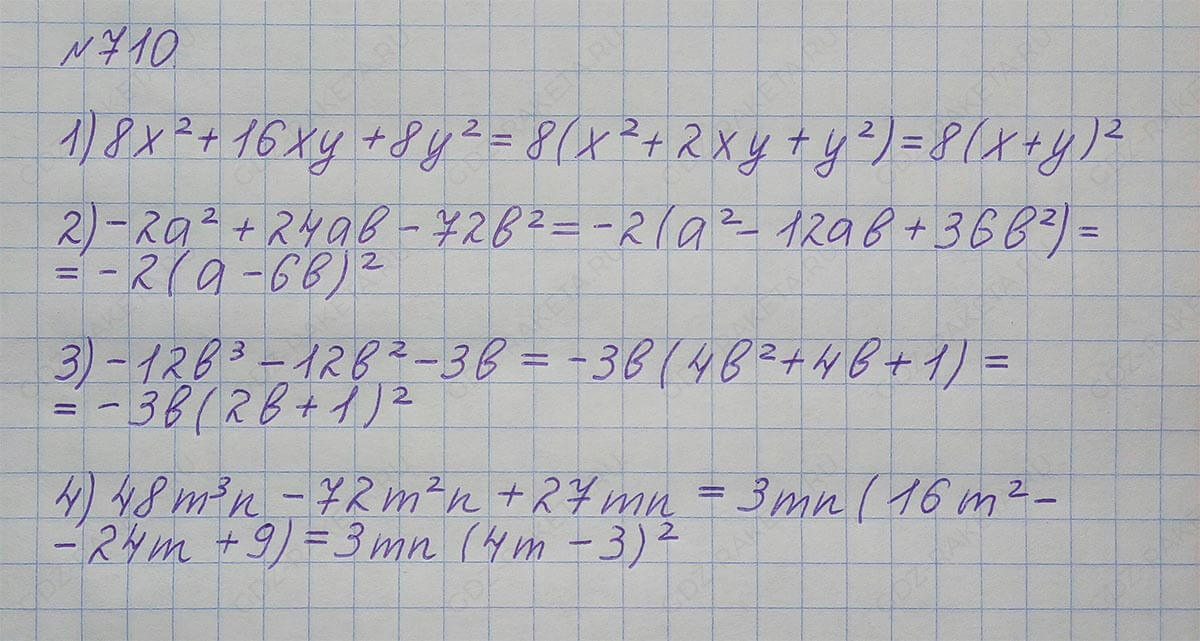 №710
1) 8x² + 16xy + 8y² = 8(x² + 2xy + y²) = 8(x+y)²
2) -2a² + 24aв - 72в² = -2(a² - 12aв + 36в²) =
= -2(a - 6в)²
3) -12в³ - 12в² - 3в = -3в(4в² + 4в + 1) =
= -3в(2в + 1)²
4) 48m³n - 72m²n + 27mn = 3mn(16m² -
- 24m + 9) = 3mn(4m - 3)²
GDZ-RAKETA.RU